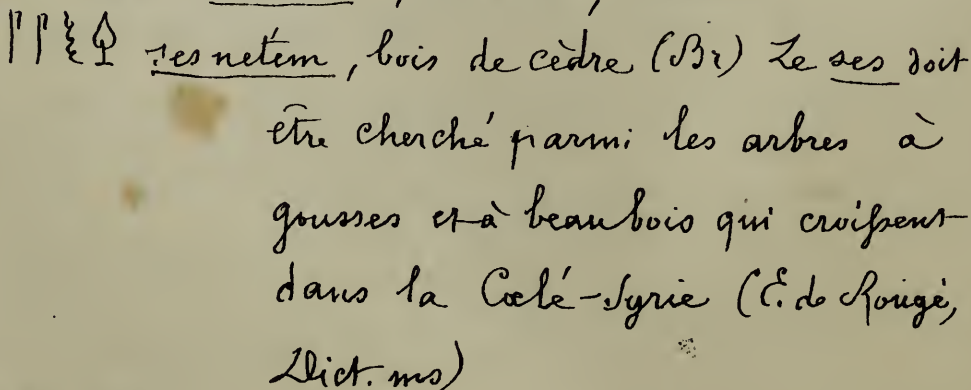 ses netem, bois de cèdre (Br) Le ses doit
être cherché parmi les arbres à
gousses et à beau bois qui croissent
dans la Cœlé-Syrie (E. de Rougé,
Dict. ms)